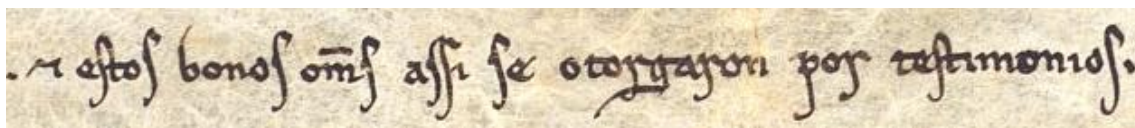 . ⁊ estos bonos om̅s assi se otorgaron por testimonios.